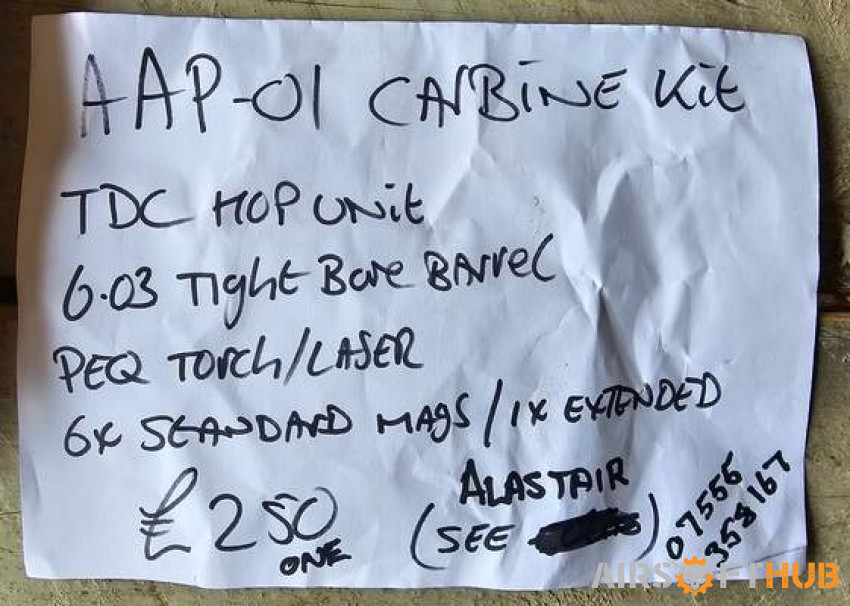 AAP-01 CARBINE Kit
TDC HOP UNit
6.03 Tight Bore BArrel
PEQ TORCH/LASER
6x STANDARD MAgS / 1x EXTENDED
£250
ONE
ALASTAIR
(SEE )
07556
358167
AIRSOFTHUB